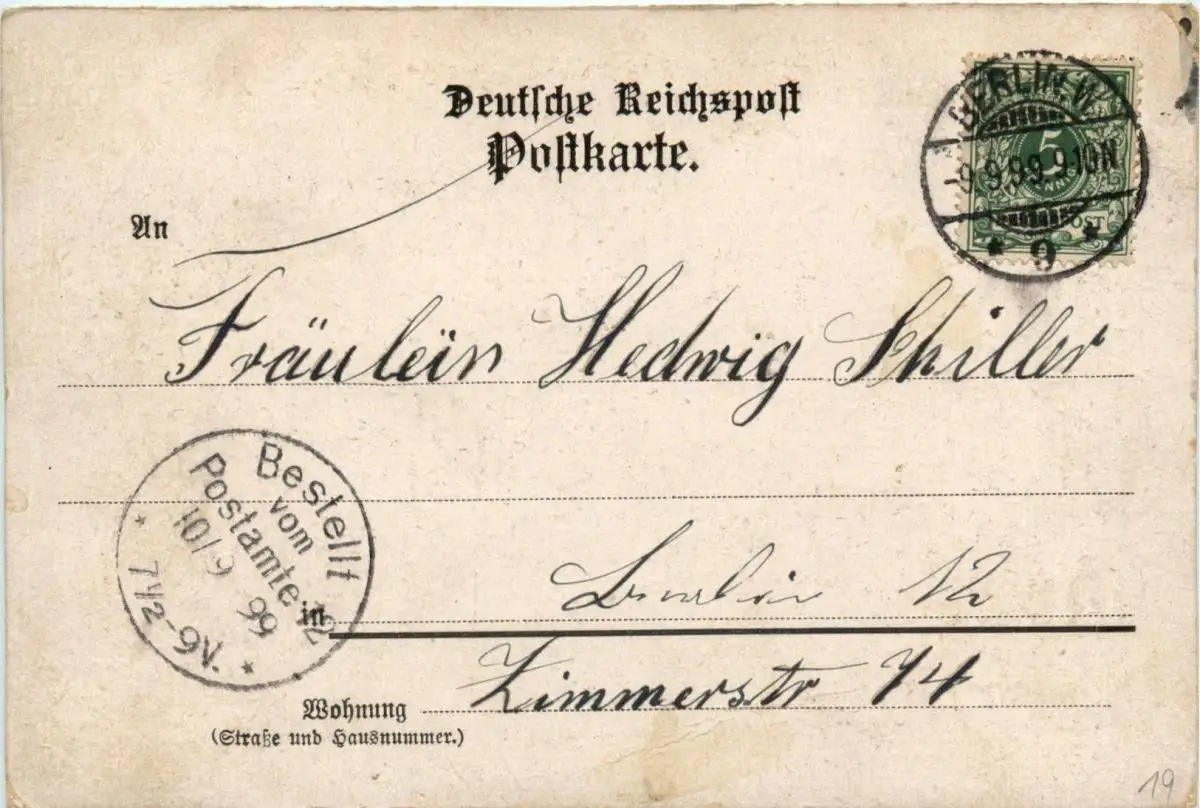 Deutsche Reichspost
Postkarte.
BERLIN W
9.9.99.9-10N
* 9 *
5
PFENNIG
POST
An
Fräulein Hedwig Schiller
Bestellt
vom
Postamte 12
10/9 99
* 7 1/2-9V. *
in Berlin 12
Wohnung Zimmerstr 74
(Straße und Hausnummer.)
19